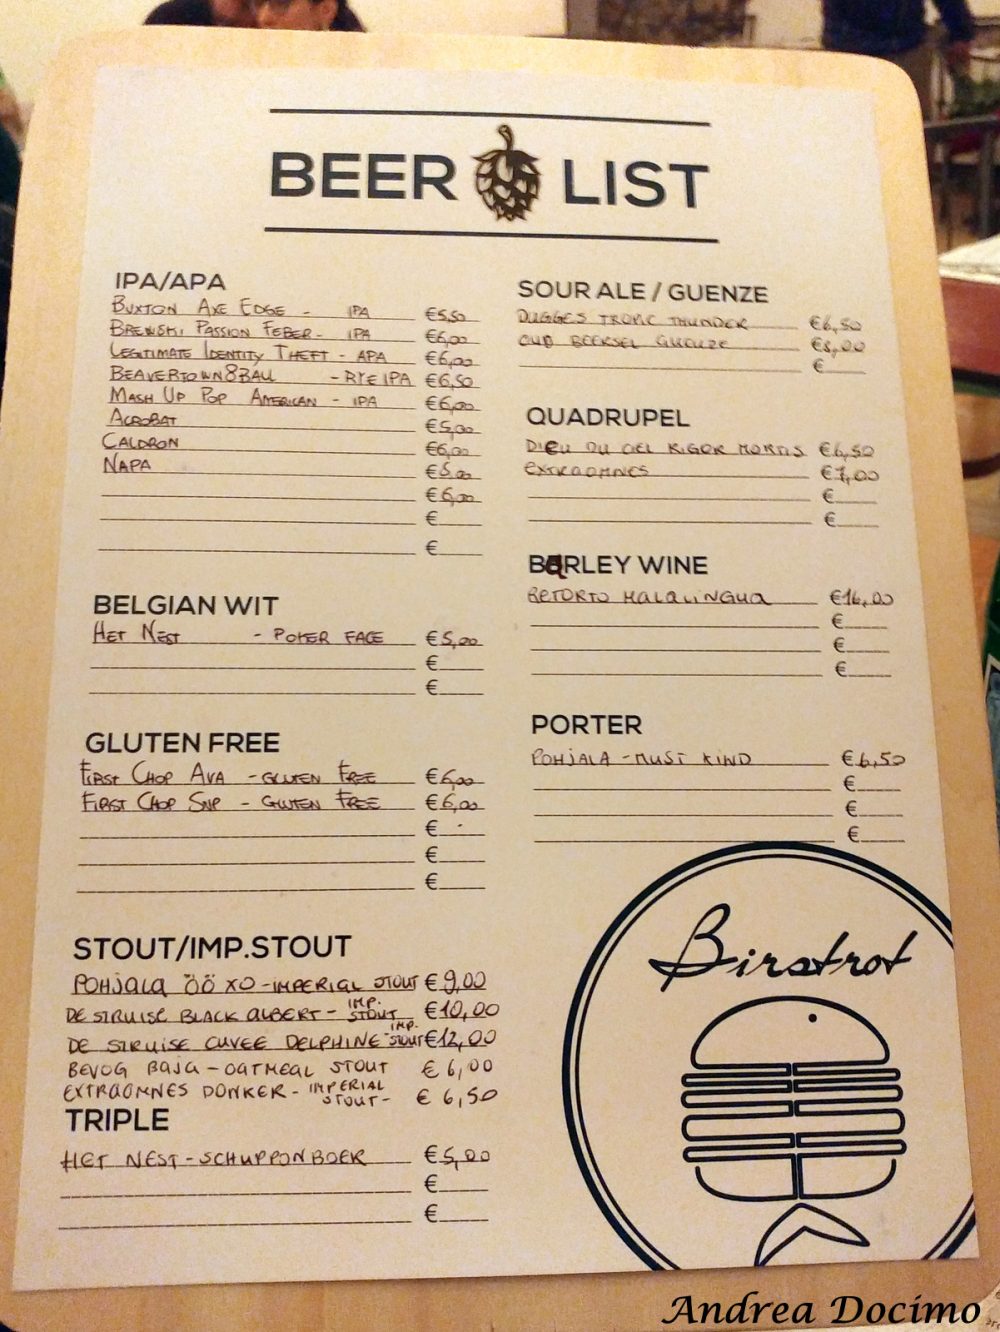 BEER LIST
IPA/APA
BUXTON AXE EDGE - IPA €5,50
BREWSKI PASSION FEBER - IPA €6,00
LEGITIMATE IDENTITY THEFT - APA €6,00
BEAVERTOWN 8BALL - RYE IPA €6,50
MASH UP POP AMERICAN - IPA €6,00
ACROBAT €5,00
CALDRON €6,00
NAPA €6,00
€6,00
€
€
BELGIAN WIT
HET NEST - POKER FACE €5,00
€
€
GLUTEN FREE
FIRST CHOP AVA - GLUTEN FREE €6,00
FIRST CHOP SNP - GLUTEN FREE €6,00
€
€
€
STOUT/IMP.STOUT
POHJALA ÖÖ XO - IMPERIAL STOUT €9,00
DE STRUISE BLACK ALBERT - IMP. STOUT €10,00
DE STRUISE CUVEE DELPHINE - IMP. STOUT €12,00
BEVOG BAJA - OATMEAL STOUT €6,00
EXTRAOMNES DONKER - IMPERIAL STOUT - €6,50
TRIPLE
HET NEST - SCHUPPONBOER €5,00
€
€
SOUR ALE / GUENZE
DUGGES TROPIC THUNDER €6,50
OUD BEERSEL GUEUZE €8,00
€
QUADRUPEL
DIEU DU CIEL RIGOR MORTIS €6,50
EXTRAOMNES €7,00
€
€
BARLEY WINE
RETORTO MALALINGUA €16,00
€
€
€
PORTER
POHJALA - MUST KIND €6,50
€
€
€
Birstrot
Andrea Docimo